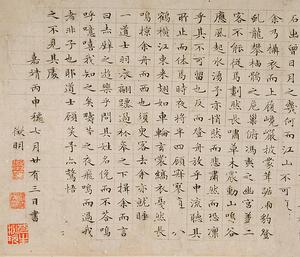 石出曾日月之幾何而江山不可
余乃攝衣而上履巉巖披蒙茸踞虎豹登
虬龍攀栖鶻之危巢俯馮夷之幽宮蓋二
客不能從焉劃然長嘯草木震動山鳴谷
應風起水湧予亦悄然而悲肅然而恐凜
乎其不可留也反而登舟放乎中流聽其
所止而休焉時夜將半四顧寂寥
鶴橫江東來翅如車輪玄裳縞衣戛然長
鳴掠余舟而西也須臾客去余亦就睡
一道士羽衣翩躚過臨皋之下揖余而言
曰赤壁之遊樂乎問其姓名俛而不答嗚
呼噫嘻我知之矣疇昔之夜飛鳴而過我
者非子也耶道士顧笑予亦驚悟
之不見其處
嘉靖丙申穐七月廿有三日書
徵明